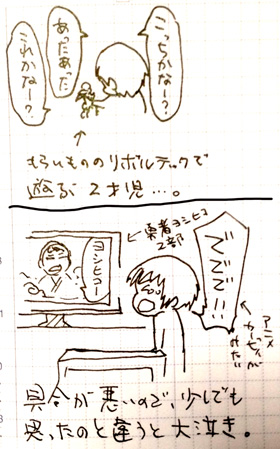 こっちかなー?
あったあった
これかなー?
もらいもののリボルテックで
遊ぶ 2才児…。
デデデ!!
アニメ
カービィが
みたい
勇者ヨシヒコ
2部
ヨシヒコー!
具合が悪いので、少しでも
思ったのと違うと大泣き。